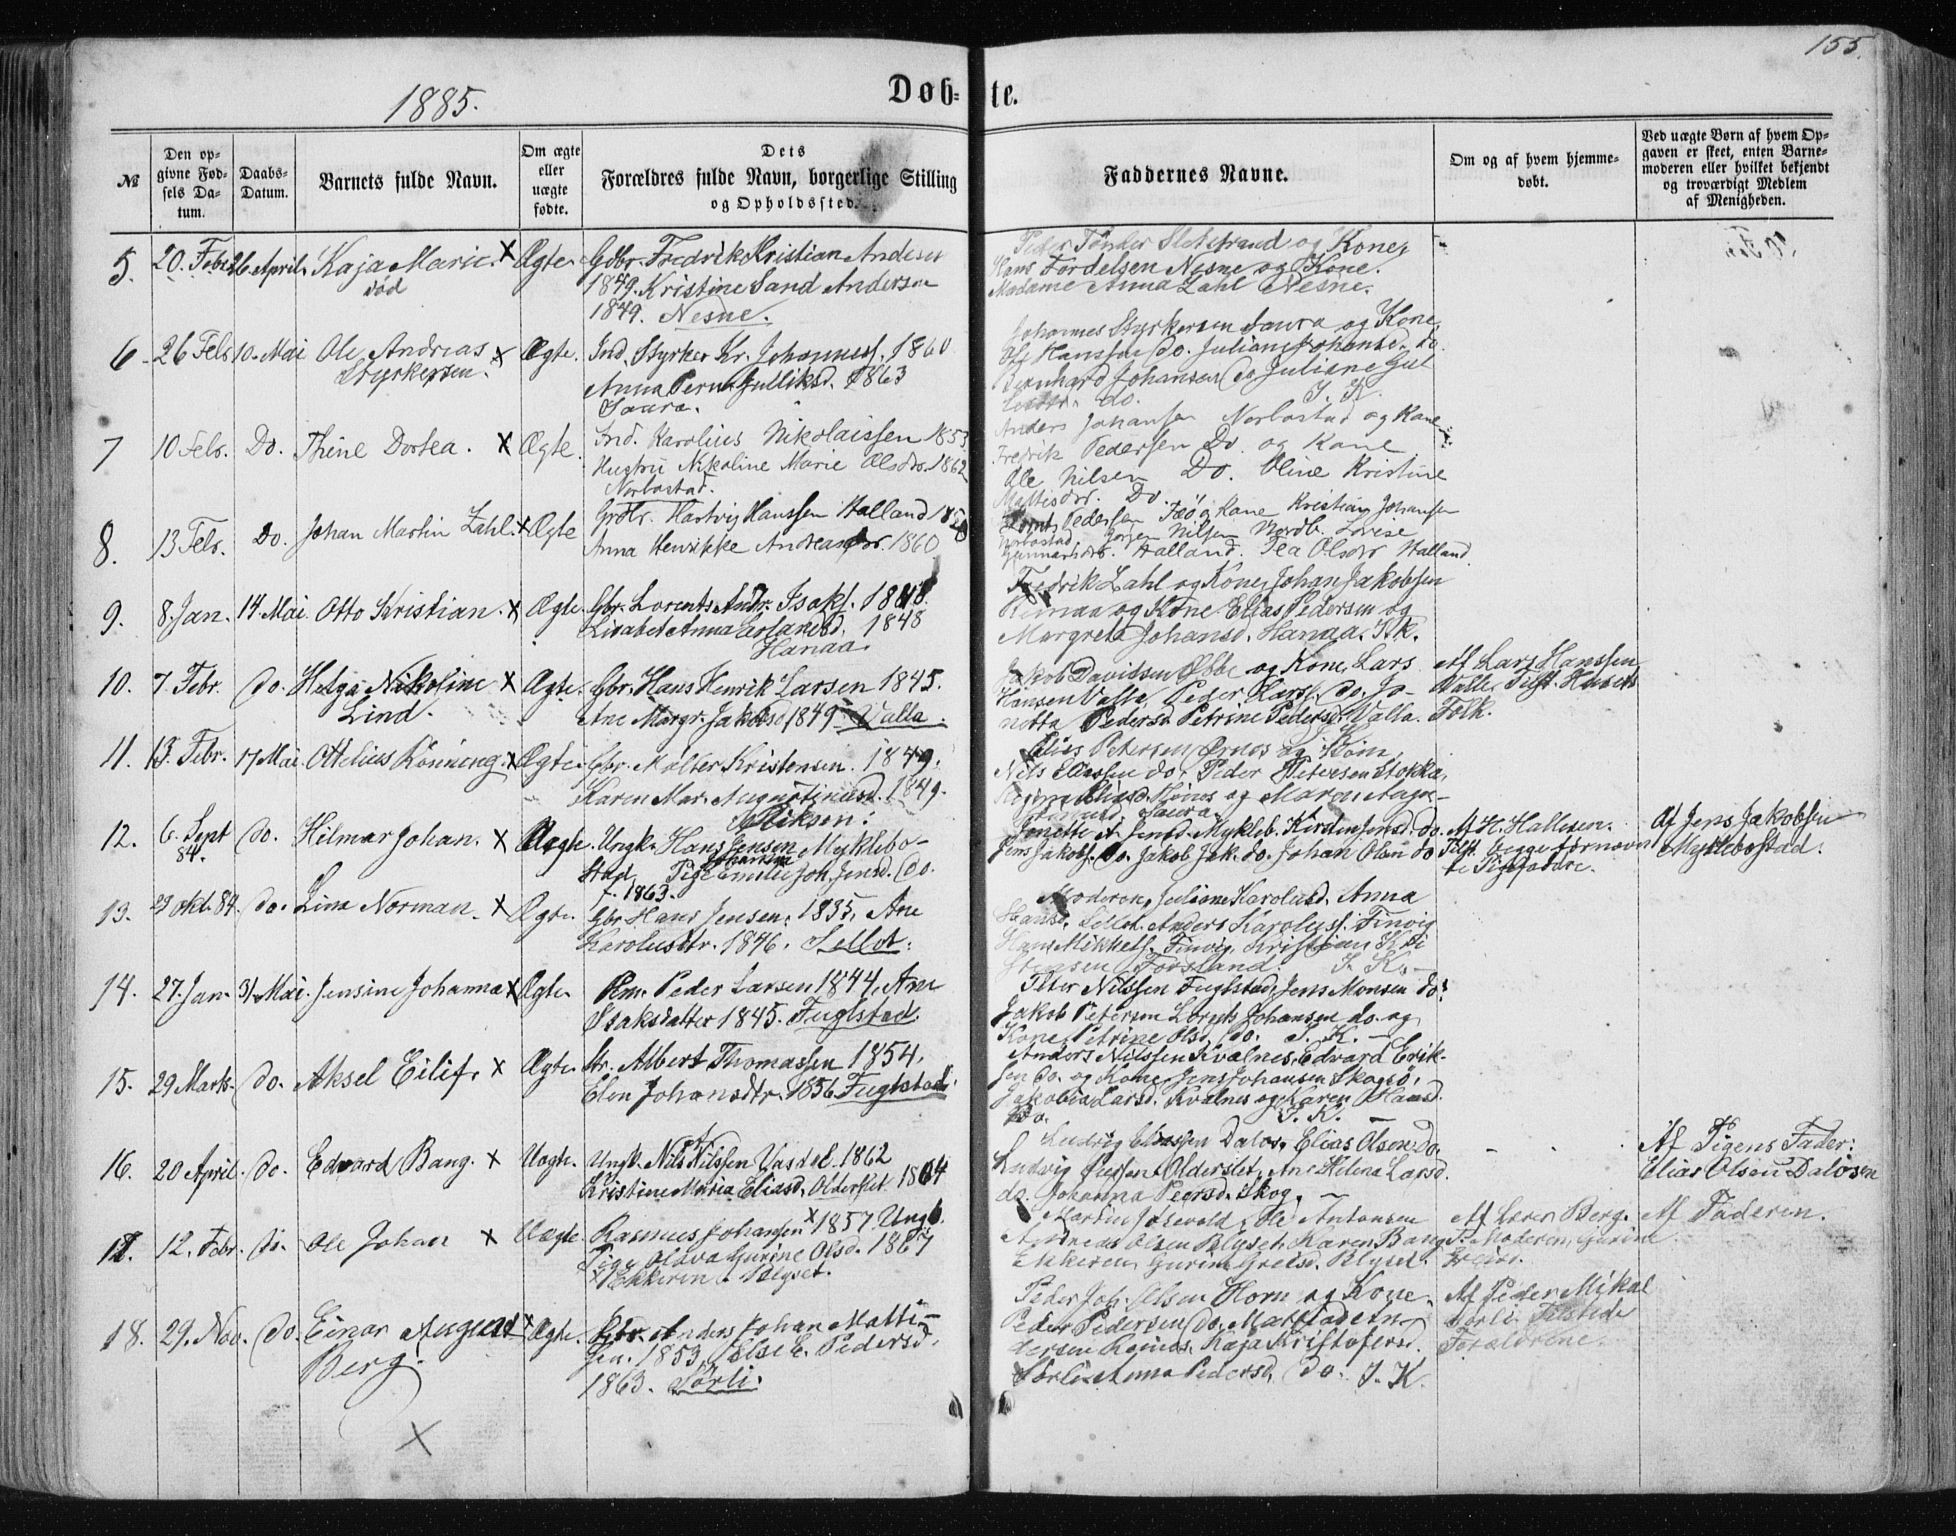 155.
1885.
Døb-
te.
№
Den op-
givne Fød-
sels Da-
tum.
Daabs-
Datum.
Barnets fulde Navn.
Om ægte
eller
uægte
fødte.
Dets
Forældres fulde Navn, borgerlige Stilling
og Opholdssted.
Faddernes Navne.
Om og af hvem hjemme-
døbt.
Ved uægte Børn af hvem Op-
gaven er skeet, enten Barne-
moderen eller hvilket bekjendt
og troværdigt Medlem
af Menigheden.
5. 20. Febr. 26 April. Kaja Marie. x Ægte. Gdbr. Fredrik Kristian Andersen
død
1849. Kristine Sand Andersen
1849. Nesne.
Peder Tønder og Kone,
Hans Nesne og Kone.
Madame Anna Zahl Nesne.
6. 26 Feb. 10. Mai Ole Andreas x Ægte. Ind. Styrker Kr. Johanness. 1860
Styrkersen.
Anna Gulliksd. 1863
Saura.
Johannes Styrkersen Saura og Kone,
Ole Hanssen do. do.
Bernhard Johansen do Juliane
do. I. K.
7 10 Feb. Do. Thine Dortea. x Ægte. Ind. Karolius Nikolaissen 1853
Hustru Nikoline Marie Olsdr. 1862
Norbostad.
Anders Johansen Norbostad og Kone
Fredrik Pedersen Do og Kone
Ole Nilsen Do. Oline Kristine
Mattisdr. Do.
8. 13 Feb. Do. Johan Martin Zahl. x Ægte Grdbr. Hartvig Hanssen Halland
Anna Henrikke Andreasdr. 1860
Pedersen og Kone Kristian Johansen
Norbostad Nilsen Nordb. Lovise
Gunnarsdr. Halland. Tea Olsdr Halland
9. 8. Jan. 14 Mai. Otto Kristian. x Ægte. Gbr. Lorents Andr. Isaks. 1848.
Lisabet Anna 1848
Hanaa.
Fredrik Zahl og Kone, Johan Jakobsen
og Kone Elias Pedersen og
Margreta Johansd. Hanaa. I. K.
10. 7. Febr. do. Helga Nikoline x Ægte. Gbr. Hans Henrik Larsen 1845.
Lind.
Ane Margr. Jakobsd 1849. Valla.
Jakob Davidsen og Kone, Lars
Hansen Valla, Peder Hans. do. Jo-
netta Pedersd. Petrine Pedersd. Valla.
Af Lars Hanssen
Valla, Tilst. Husets
Folk.
11. 13. Febr. 17 Mai. Ottelius Rønning. x Ægte. Gbr. Molter Kristensen. 1849.
Karen Mar. Augustinusd. 1849.
Elias Petersen Ørnes og
Nils Eliassen do, Peder Petersen Stokka,
Eliasd. og Maren Augu-
Saura.
12. 6. Sept do. Hilmar Johan. x Uægte. Ungk. Hans Jensen Myklebo-
84.
stad, Pige Emilie Joh. Jensd. do.
f. 1863.
Jonette A. Jensd. Mykleb. Kirsten Jensd. do.
Jens Jakobs. do. Jakob Jak. do. Johan Olsen do
Af H. Hallesen.
Tilst. begge førnævn-
te
Af Jens Jakobsen
Myklebostad.
13. 23 okt. 84. do. Lina Norman. x Ægte. Gbr. Hans Jensen. 1835, Ane
Karolusdtr. 1846.
Moderen, Juliane Karolusd. Anna
Hansd. Anders Karoluss. Finvig
Hans Mikkels. Finvig, Kristian Kri
stensen Forsland. I. K. —
14. 27. Jan. 31 Mai. Jensine Johanna x Ægte. Peder Larsen 1844, Ane
Isaksdatter 1845. Fuglstad.
Peter Nilssen Fuglstad, Jens Monsen do.
Jakob Petersen Johansen do. og
Kone, Petrine Olsd. do. I. K. —
15. 29 Marts. do. Aksel Eilif. x Ægte. Albert Thomassen 1854,
Elen Johansdtr. 1856. Fuglstad.
Anders Nilssen Kvalnes, Edvard Erik-
sen do. og Kone, Jens Johansen
Jakobia Larsd. Kvalnes og Karen Hansd.
Do. I. K. —
16. 20 April. do. Edvard Bang. x Uægte. Ungk. Nils Nilssen 1862
Kristine Maria Eliasd. Olderslet 1864
Ludvig Dalos, Elias Olsen do,
Ludvig Olderslet, Ane Helena Larsd.
do. Johanna Peersd. Skog. —
Af Pigens Fader:
Elias Olsen Dalosen
17. 12. Febr. do. Ole Johan x Uægte. Rasmus Johansen x 1857. Ungk.
Pige Oldva Gurine Olsd. 1867
x Ekkeren. Blyset.
Martin Ole Antonsen
Andreas Olsen Blyset, Karen Bang
Ekkeren, Gurine Blyset.
Af Lærer Berg.
T. Moderen, Gurine
Af Faderen.
18. 29. Nov. do. Einar August x Ægte. Gbr. Anders Johan Matti-
Berg.
sen. 1853, Else E. Pedersd.
1863. Sørli.
Peder Joh. Olsen Horn og Kone,
Peder Pedersen do.
dersen Kaja Kristofersd.
Sørli Anna Pedersd. do. I. K.
Af Peder Mikal
Sørli. Tilstede
Forældrene.
x